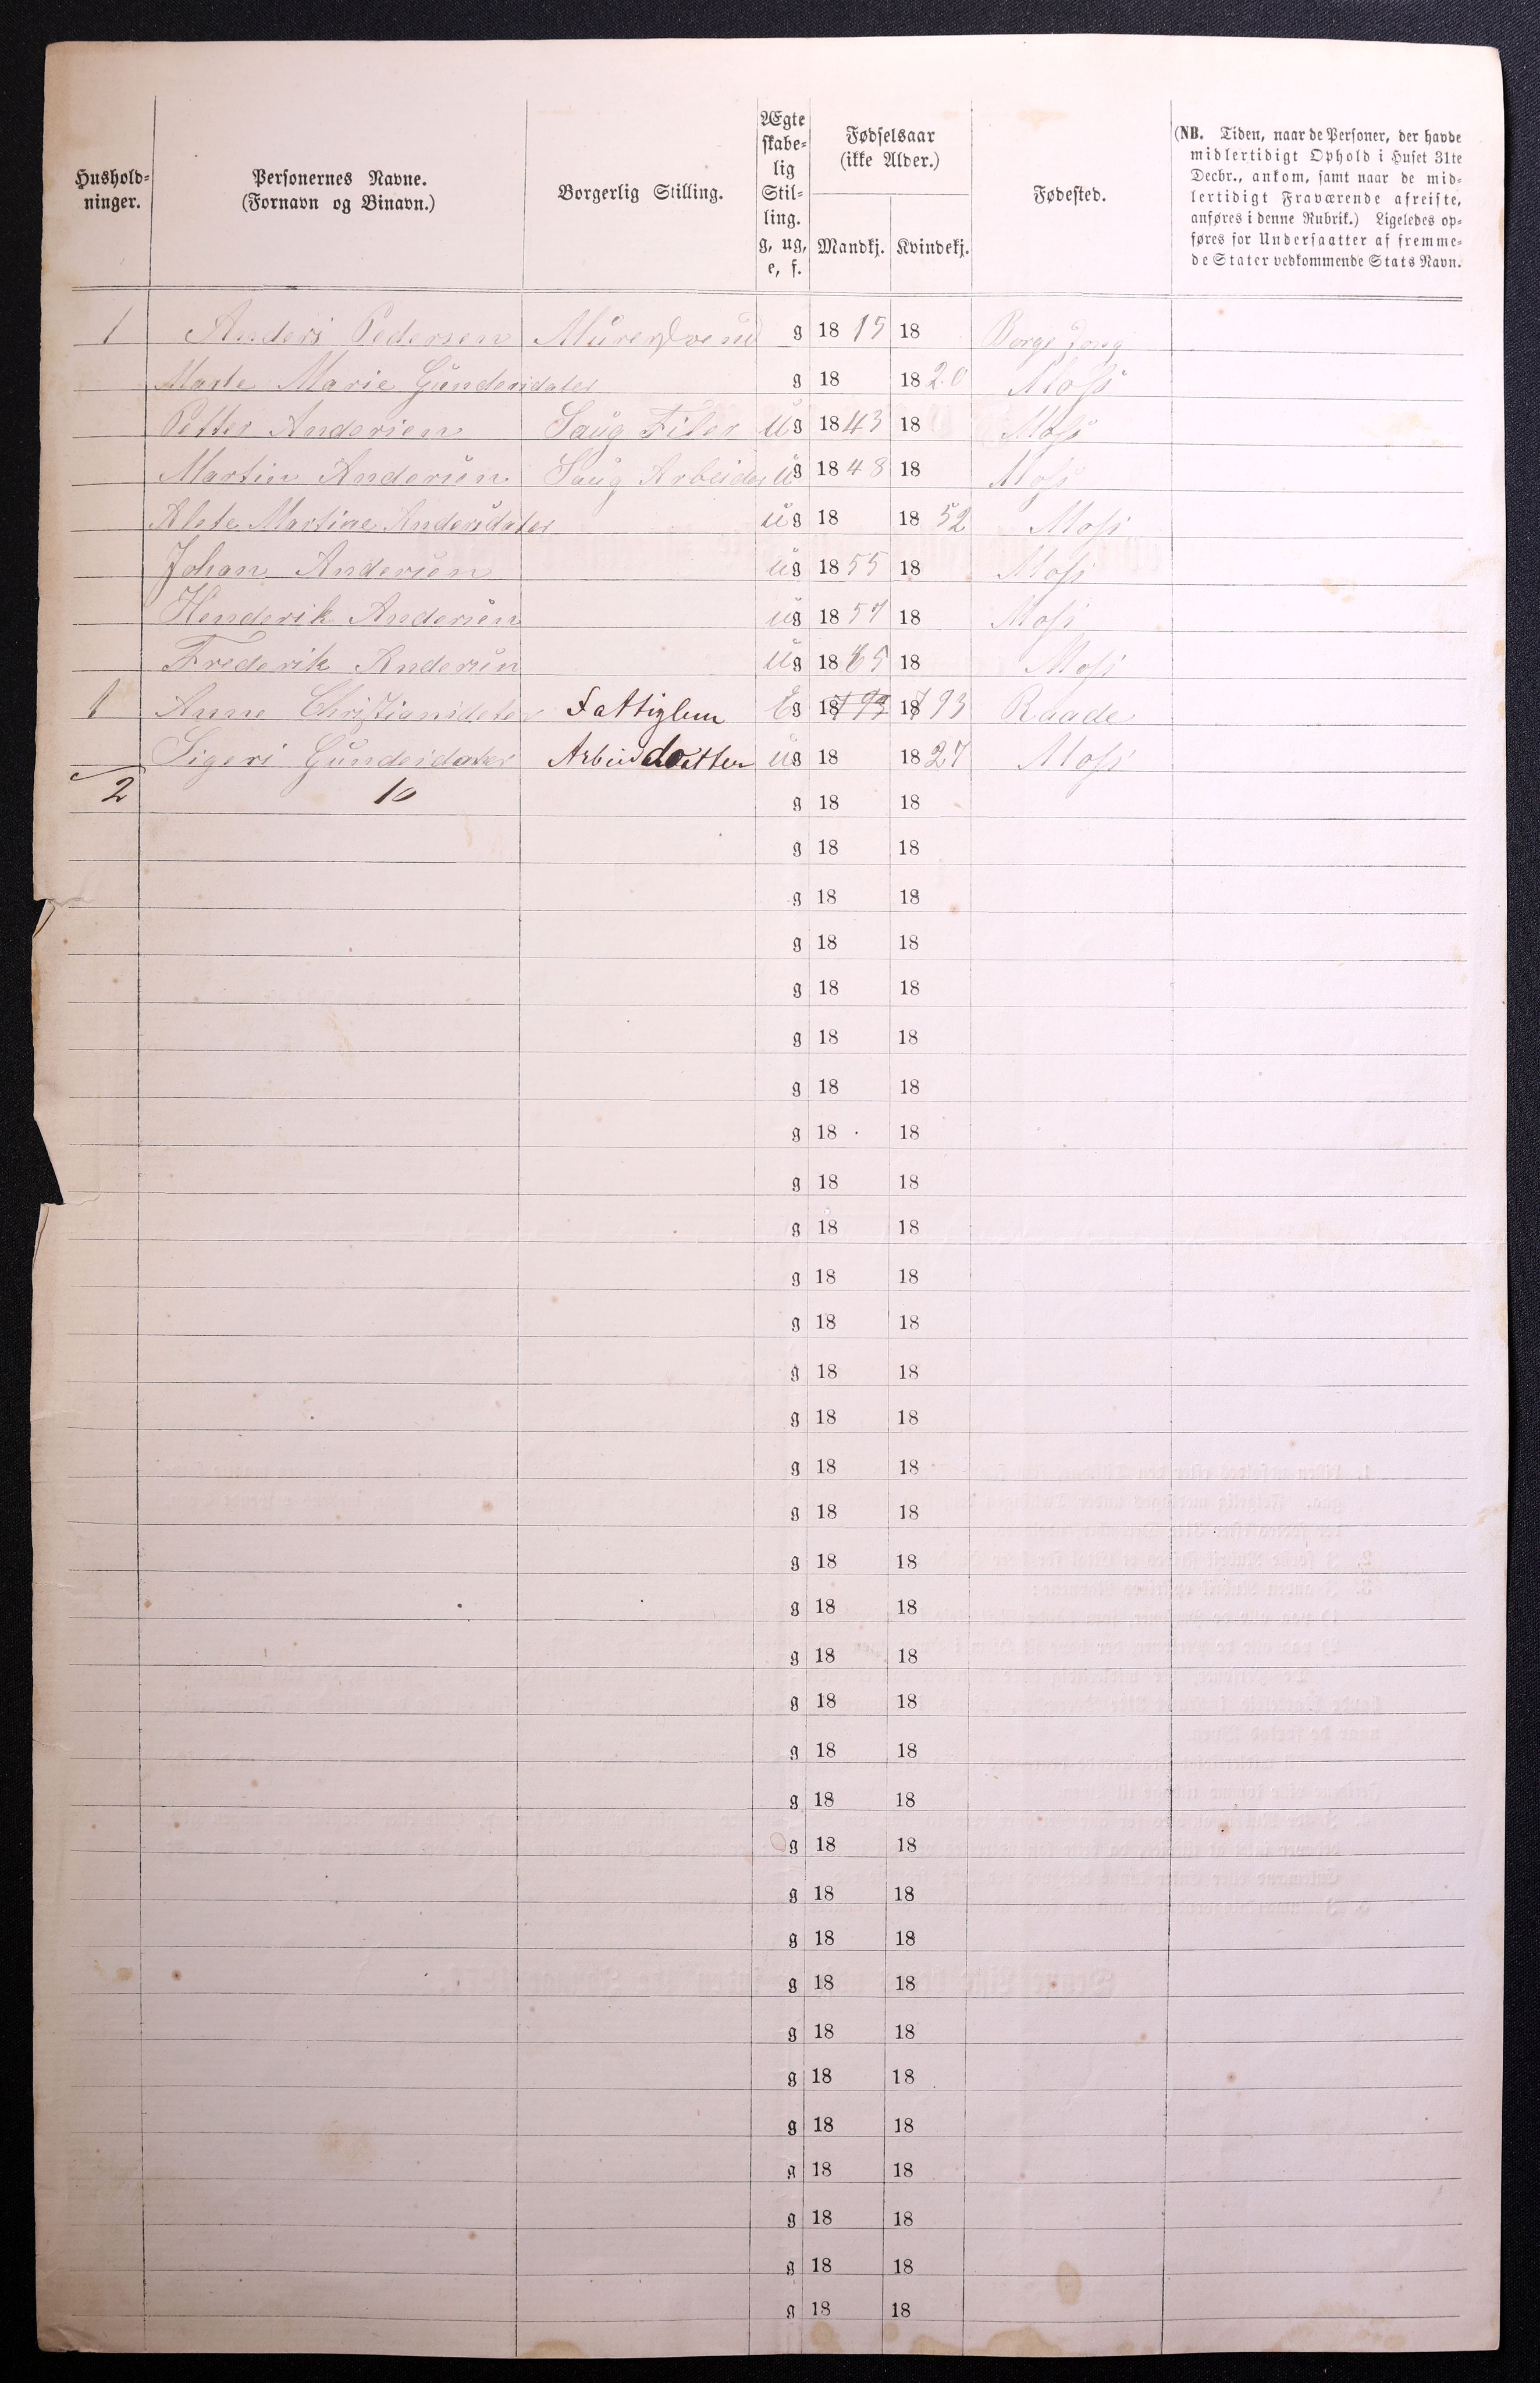 Hushold-
ninger.
Personernes Navne.
(Fornavn og Binavn.)
Borgerlig Stilling.
Ægte
skabe-
lig
Stil-
ling.
g, ug,
e, f.
Fødselsaar
(ikke Alder.)
Mandkj. Kvindekj.
Fødested.
(NB. Tiden, naar de Personer, der havde
midlertidigt Ophold i Huset 31te
Decbr., ankom, samt naar de mid-
lertidigt Fraværende afreiste,
anføres i denne Rubrik.) Ligeledes op-
føres for Undersaatter af fremme-
de Stater vedkommende Stats Navn.
1 Anders Pedersen Murersvend g 18 15 18 Borge
Marte Marie Gundersdater g 18 18 20 Moss
Petter Andersen Saug Filer ug 18 43 18 Moss
Martin Andersen Saug Arbeider ug 18 48 18 Moss
Alete Martine Andersdater ug 18 18 52 Moss
Johan Andersen ug 18 55 18 Moss
Henderik Andersen ug 18 57 18 Moss
Frederik Andersen ug 18 65 18 Moss
1 Anne Christiansdeter Fattiglem E g 1793 1793 Raade
Sigeri Gundersdater Arbeid datter ug 18 18 27 Moss
2 10 g 18 18
g 18 18
g 18 18
g 18 18
g 18 18
g 18 18
g 18 18
g 18 18
g 18 18
g 18 18
g 18 18
g 18 18
g 18 18
g 18 18
g 18 18
g 18 18
g 18 18
g 18 18
g 18 18
g 18 18
g 18 18
g 18 18
g 18 18
g 18 18
g 18 18
g 18 18
g 18 18
g 18 18
g 18 18
g 18 18
g 18 18
g 18 18
g 18 18